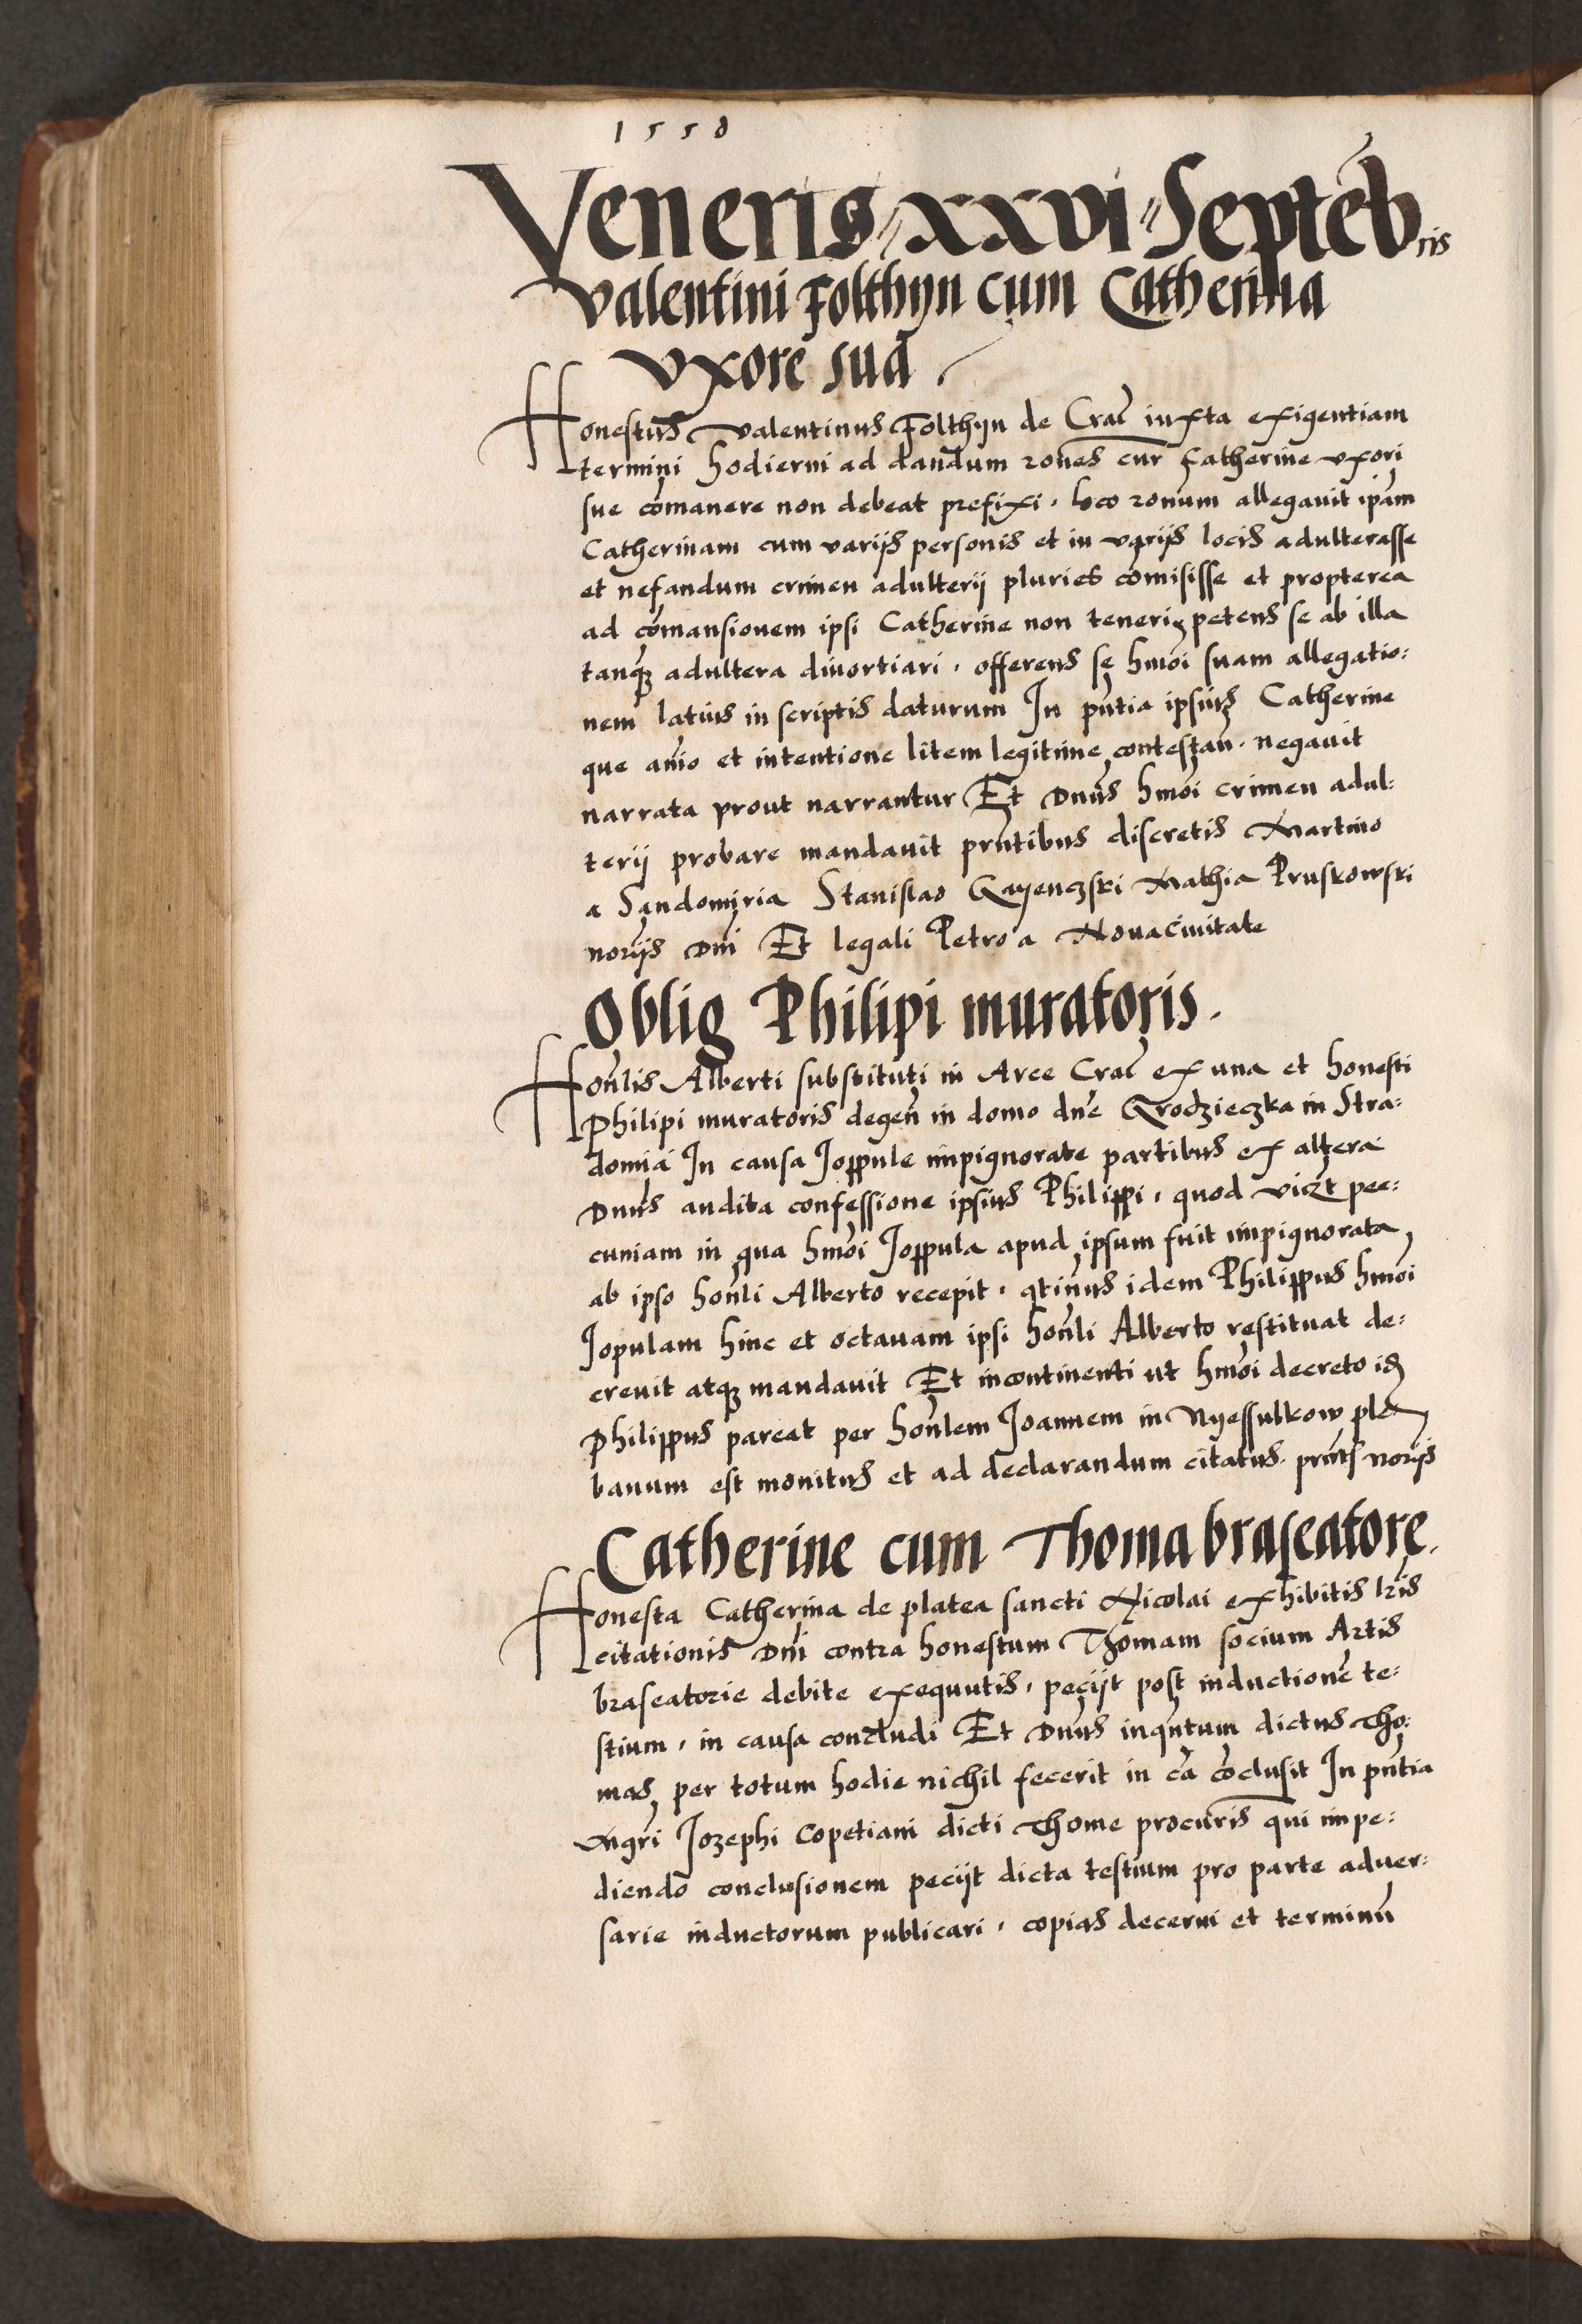 1550
Veneris xxvi Septēbris
Valentini Folthyn cum Catherina
vxore sua
Honestus Valentinus Folthyn de Crac̄ iuxta exigentiam
termini hodierni ad dandum rōnes cur Catherine vxori
sue cōmanere non debeat prefixi, loco rōnum allegauit ipām
Catherinam cum varijs personis et in varijs locis adulterasse
et nefandum crimen adulterij pluries cōmisisse et propterea
ad cōmansionem ipsi Catherine non teneri, petens se ab illa
tanq̄ adultera diuortiari, offerens se hmōi suam allegatio:
nem latius in scriptis daturum In pn̄tia ipsius Catherine
que anīo et intentione litem legitime contestan̄. negauit
narrata prout narrantur Et Dnūs hmōi crimen adul:
terij probare mandauit prn̄tibus discretis Martino
a Sandomiria Stanislao Gayenczski Mathia Pruskowski
norijs Dnī Et legali Petro a Nouaciuitate
Oblig Philipi muratoris.
Honl̄is Alberti substituti in Arce Crac̄ ex una et honesti
Philipi muratoris degen̄ in domo dnē Grodzieczka in Stra:
domia In causa Joppule impignorate partibus ex altera
Dnūs audita confessione ipsius Philippi, quod vidz̄t pec:
cuniam in qua hmōi Joppula apud ipsum fuit impignorata,
ab ipso honl̄i Alberto recepit, qtin̄us idem Philippus hmōi
Jopulam hinc et octauam ipsi honl̄i Alberto restituat de:
creuit atq̄ mandauit Et incontinenti ut hmōi decreto id̄
Philippus pareat per honl̄em Joannem in Nyessulkow ple
banum est monitus et ad declarandum citatus. prn̄ts norijs
Catherine cum Thoma braseatore.
Honesta Catherina de platea sancti Nicolai exhibitis lr̄is
citationis Dnī contra honestum Thomam socium Artis
braseatorie debite exequutis, pecijt post inductionē te:
stium, in causa concludi Et Dnūs inqn̄tum dictus Tho:
mas, per totum hodie nichil fecerit in cā cōclusit In pn̄tia
Mgrī Jozephi Copetiani dicti Thome procuris̄ qui impe:
diendo conclusionem pecijt dicta testium pro parte aduer:
sarie inductorum publicari, copias decerni et terminū